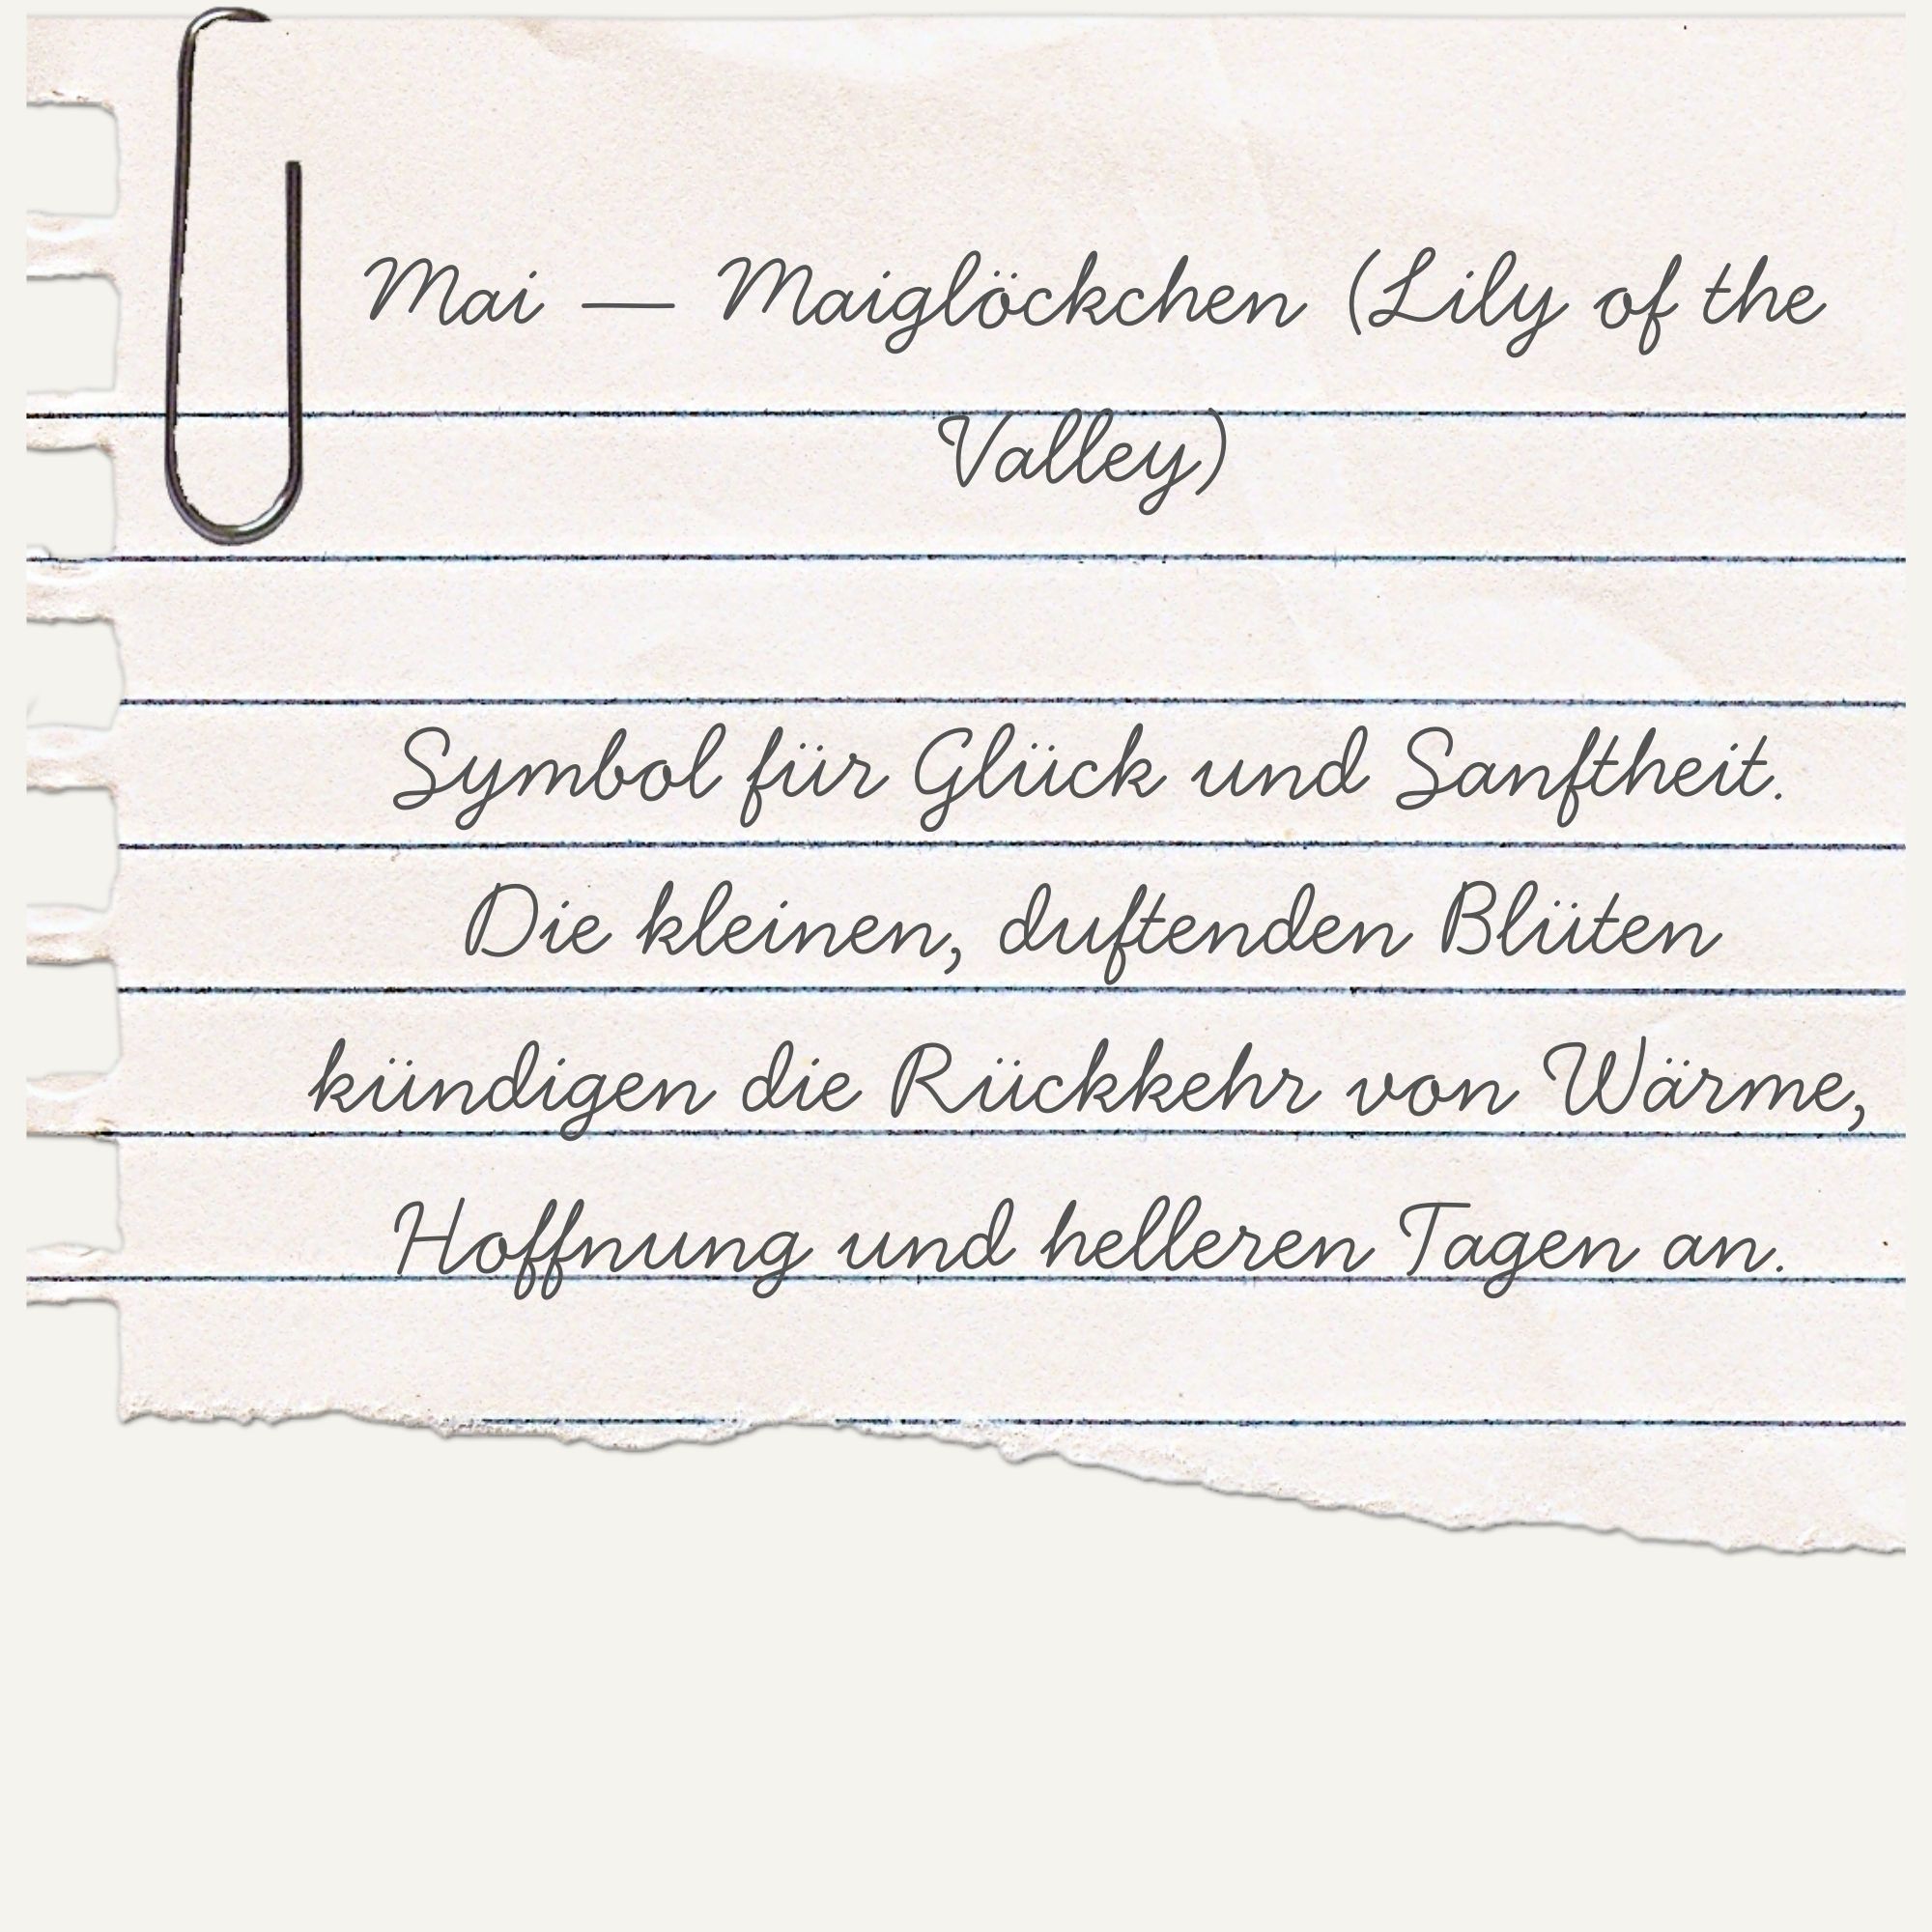 Mai — Maiglöckchen (Lily of the
Valley)
Symbol für Glück und Sanftheit.
Die kleinen, duftenden Blüten
kündigen die Rückkehr von Wärme,
Hoffnung und helleren Tagen an.